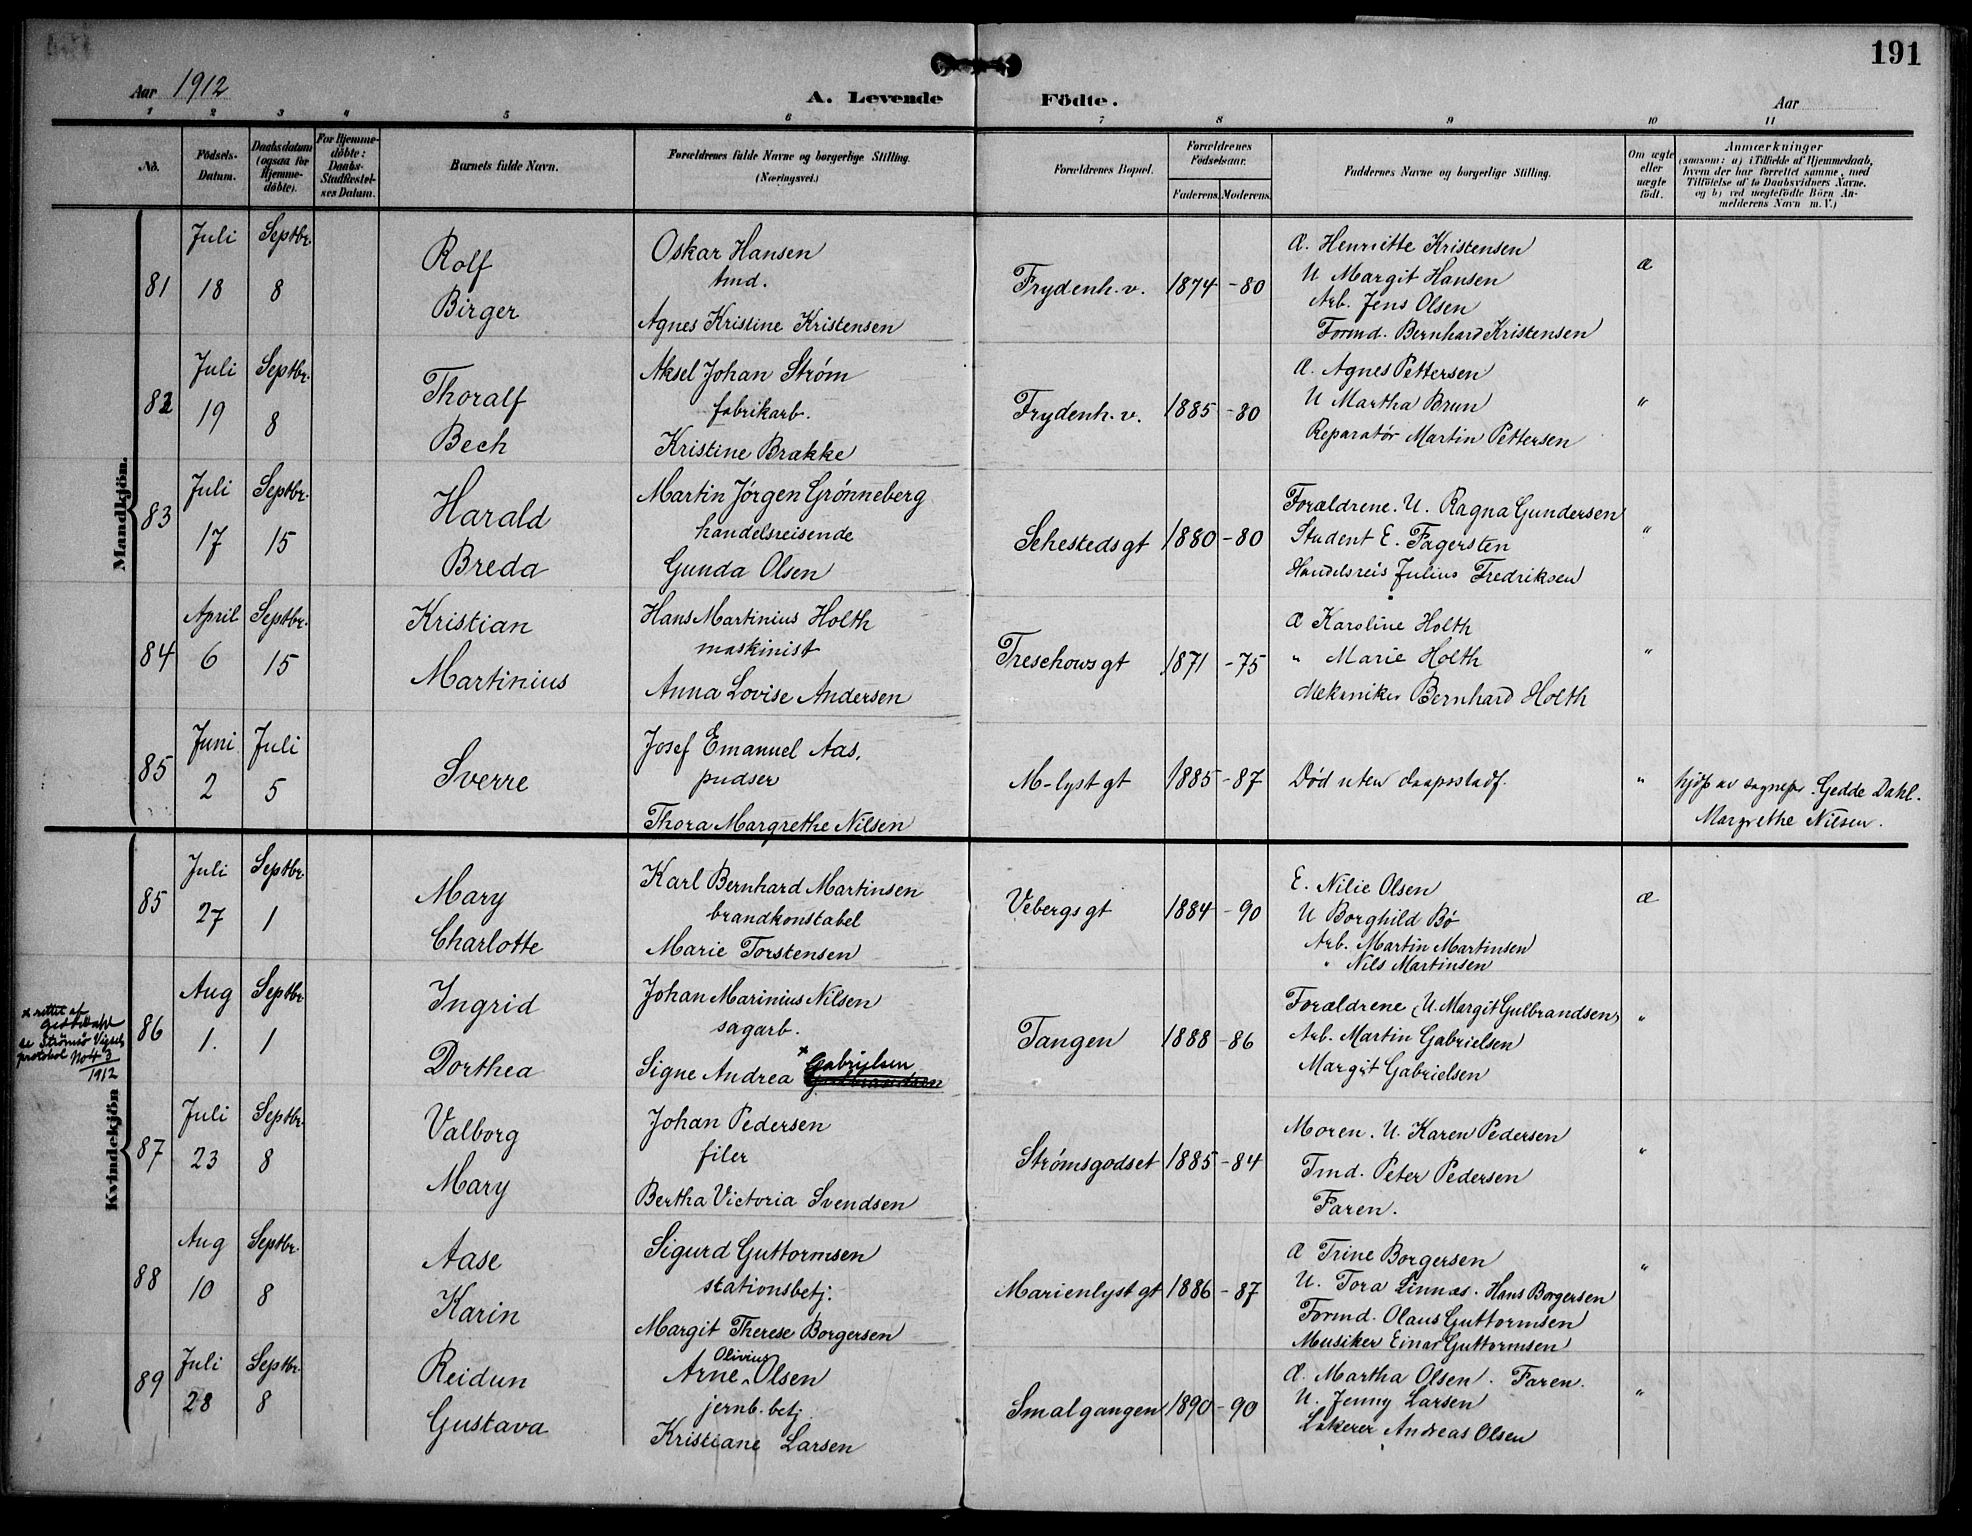 191
Aar 1912
A. Levende Födte.
Aar
1 2 3 4 5 6 7 8 9 10 11
No.
Födsels-Datum.
Daabsdatum (ogsaa for Hjemme-döbte).
For Hjemme-döbte: Daabs-Stadfæstel-ses Datum.
Barnets fulde Navn.
Forældrenes fulde Navne og borgerlige Stilling. (Næringsvei.)
Forældrenes Bopæl.
Forældrenes Födselsaar.
Faderens. Moderens.
Faddernes Navne og borgerlige Stilling.
Om ægte eller uægte födt.
Anmærkninger
(saasom: a) i Tilfælde af Hjemmedaab, hvem der har forrettet samme, med Tilföielse af to Daabsvidners Navne, og b) ved uægtefödte Börn An-melderens Navn m. V.)
Mandkjön.
81 Juli 18 Septbr. 8
Rolf Birger
Oskar Hansen
tmd.
Agnes Kristine Kristensen
Frydenh. v. 1874 -80
Æ. Henriette Kristensen
U Margit Hansen
Arb. Jens Olsen
Formd. Bernhard Kristensen
æ
82 Juli 19 Septbr. 8
Thoralf Bech
Aksel Johan Strøm
fabrikarb.
Kristine Brakke
Frydenh. v. 1885 -80
Æ. Agnes Pettersen
U Martha Brun
Reparatør Martin Pettersen
"
83 Juli 17 Septbr. 15
Harald Breda
Martin Jørgen Grønneberg
handelsreisende
Gunda Olsen
Sehestedsgt 1880 -80
Forældrene. U. Ragna Gundersen
Student E. Fagersten
Handelsreis Julius Fredriksen
"
84 April 6 Septbr. 15
Kristian Martinius
Hans Martinius Holth
maskinist
Anna Lovise Andersen
Treschowsgt 1871 -75
Æ Karoline Holth
" Marie Holth
Mekaniker Bernhard Holth
"
85 Juni 2 Juli 5
Sverre
Josef Emanuel Aas,
pudser
Thora Margrethe Nilsen
M-lyst gt 1885 -87
Død uten daapsstadf.
"
hjdp av sognepr. Gedde Dahl.
Margrethe Nilsen.
Kvindekjön
85 Juli 27 Septbr. 1
Mary Charlotte
Karl Bernhard Martinsen
brandkonstabel
Marie Torstensen
Vebergsgt 1884 -90
E. Nilie Olsen
U Borghild Bø
Arb. Martin Martinsen
" Nils Martinsen
æ
x rettet af
Gedde Dahl
se Strømsø Vigsels
protokol No 43
1912
86 Aug 1. Septbr. 1
Ingrid Dorthea
Johan Marinius Nilsen
sagarb.
Signe Andrea x Gabrielsen
Tangen 1888 -86
Forældrene, U. Margit Gulbrandsen,
Arb. Martin Gabrielsen
Margit Gabrielsen
"
87 Juli 23 Septbr. 8
Valborg Mary
Johan Pedersen
filer
Bertha Victoria Svendsen
Strømsgodset 1885 -84
Moren. U. Karen Pedersen
Tmd. Peter Pedersen
Faren.
"
88 Aug 10 Septbr. 8
Aase Karin
Sigurd Guttormsen
stationsbetj.
Margit Therese Borgersen
Marienlyst gt 1886 -87
Æ Trine Borgersen
U. Tora Linnæs. Hans Borgersen
Formd. Olaus Guttormsen
Musiker Einar Guttormsen
"
89 Juli 28 Septbr. 8
Reidun Gustava
Arne Olivius Olsen
jernb. betj.
Kristiane Larsen
Smalgangen 1890 -90
Æ. Martha Olsen. Faren.
U. Jenny Larsen
Lakerer Andreas Olsen
"